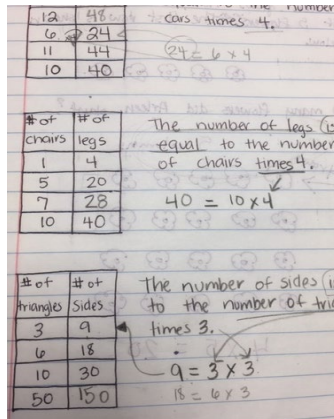 the number
12 48 cars times 4.
6 24
11 44 24 = 6 x 4
10 40
# of chairs # of legs
1 4
5 20
7 28
10 40
The number of legs
equal to the number
of chairs times 4.
40 = 10 x 4
# of triangles # of sides
3 9
6 18
10 30
50 150
The number of sides
to the number of
times 3.
9 = 3 x 3
18 = 6 x 3